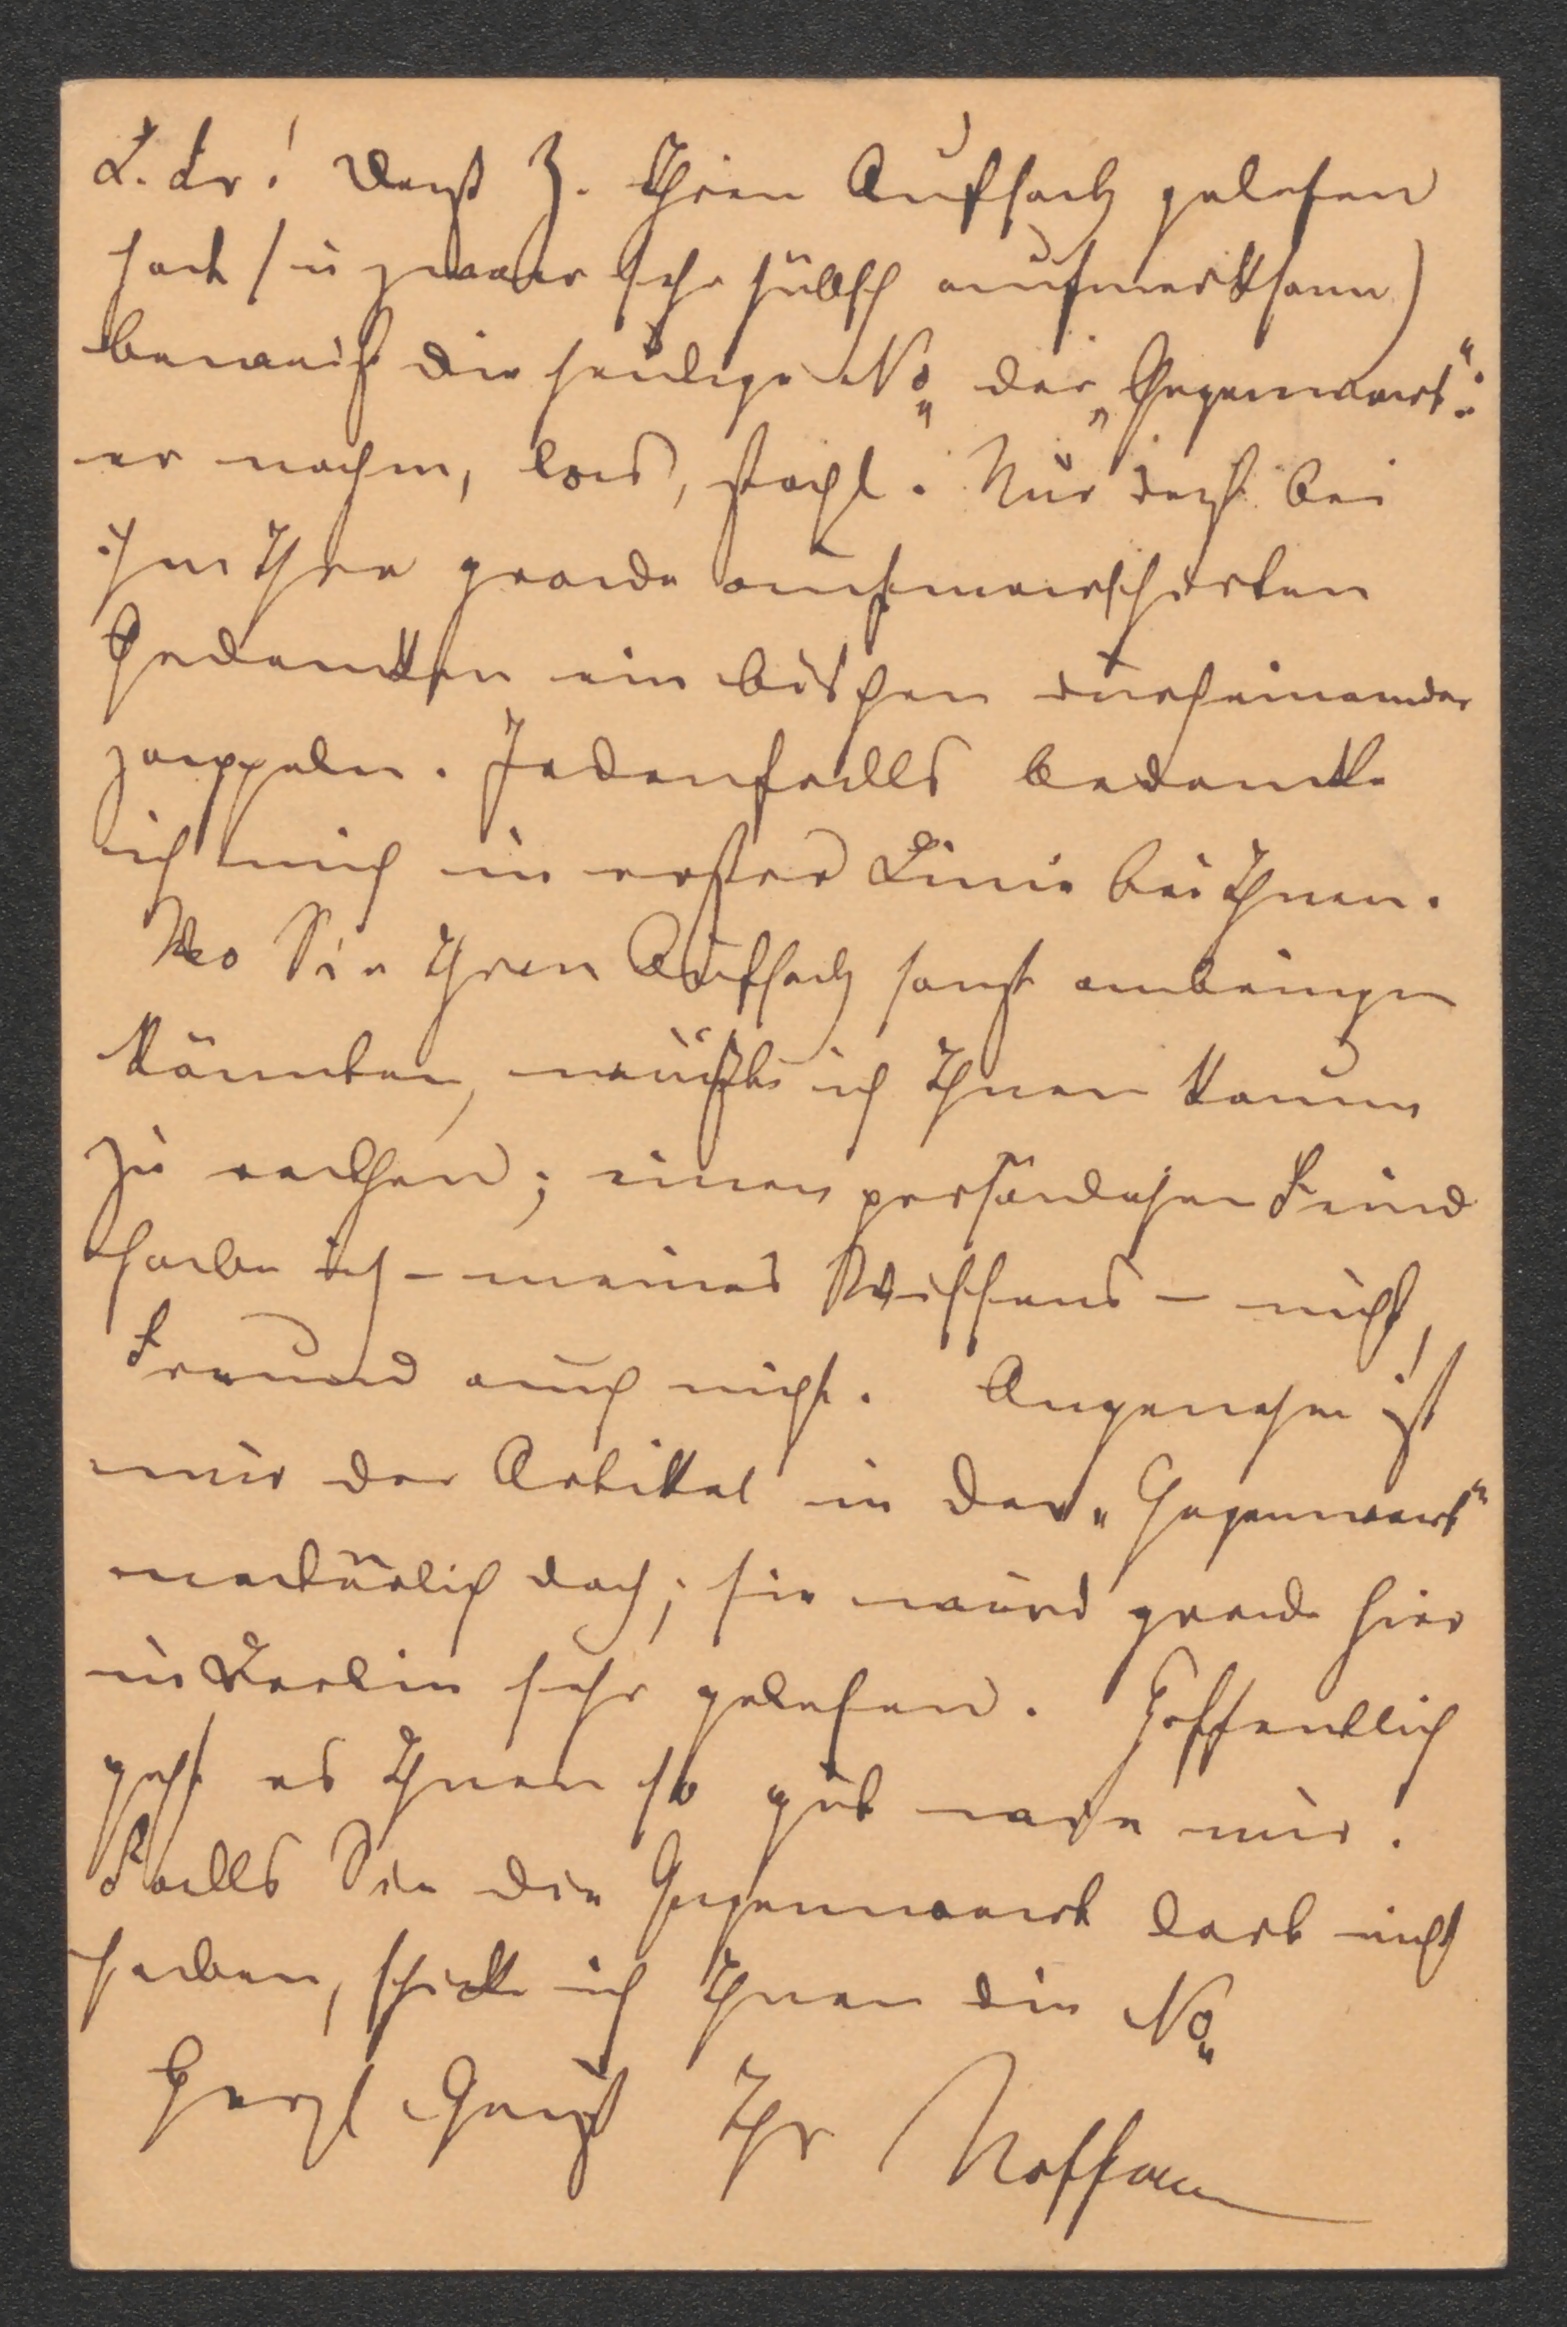 L. Fr! Daß Z. Ihren Aufsatz gelesen
hat (u zwar sehr hübsch aufmerksam)
beweist die heutige No der „Gegenwart“:
er nahm, las, stahl. Nur daß bei
ihm Ihre grade aufmarschirten
Gedanken ein bischen durcheinander
zappeln. Jedenfalls bedanke
ich mich in erster Linie bei Ihnen.
Wo Sie Ihren Aufsatz sonst anbringen
könnten, wüßte ich Ihnen kaum
zu rathen; einen persönlichen Feind
habe ich – meines Wissens – nicht,
Freund auch nicht. Angenehm ist
mir der Artikel in der „Gegenwart“
natürlich doch; sie wird grade hier
in Berlin sehr gelesen. Hoffentlich
geht es Ihnen so gut wie mir.
Falls Sie die Gegenwart dort nicht
haben, schicke ich Ihnen die No
Herzl Gruß Ihr Hoffmann